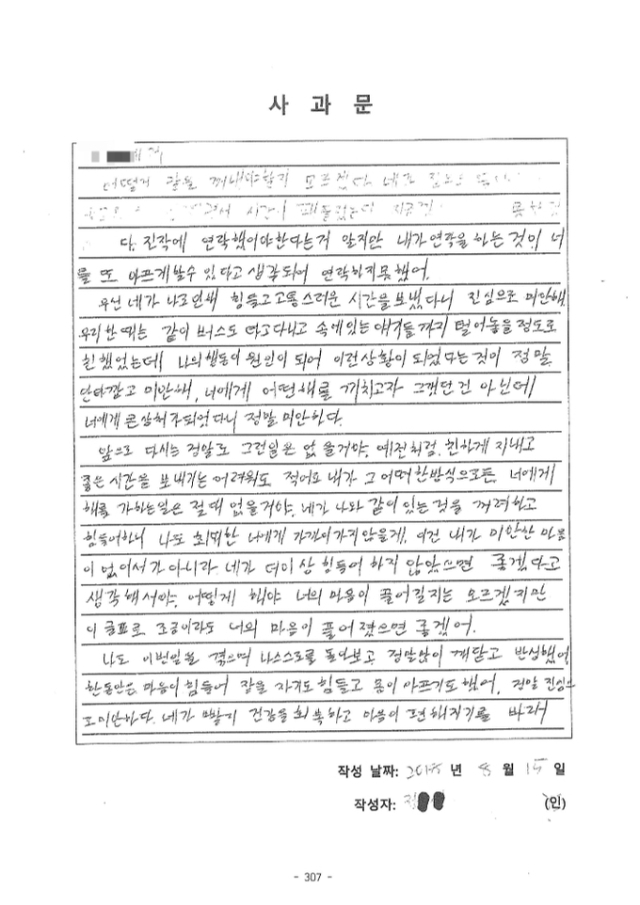 사 과 문
어떻게 말을 꺼내야할지 모르겠다.
시간이 지금껏 못한
다. 진작에 연락했어야한다는거 알지만 내가 연락을 하는 것이 너
를 또 아프게 할수 있다고 생각되어 연락하지 못했어.
우선 네가 나로인해 힘들고 고통스러운 시간을 보냈다니 진심으로 미안해
우리 한때는 같이 버스도 타고 다니고 속에있는 얘기들까지 털어놓을 정도로
친했었는데 나의 행동이 원인이 되어 이런상황이 되었다는 것이 정말
안타깝고 미안해, 너에게 어떤해를 끼치고자 그랬던건 아닌데
너에게 큰상처가 되었다니 정말 미안하다.
앞으로 다시는 정말로 그런일은 없을거야. 예전처럼 친하게 지내고
좋은 시간을 보내기는 어려워도 적어도 내가 그 어떠한방식으로든 너에게
해를 가하는일은 절대 없을거야. 네가 나와 같이 있는 것을 꺼려하고
힘들어하니 나도 최대한 너에게 가까이가지않을게. 이건 내가 미안한 마음
이 없어서가 아니라 네가 더이상 힘들어 하지 않았으면 좋겠다고
생각해서야. 어떻게 해야 너의 마음이 풀어질지는 모르겠지만
이 글로 조금이라도 너의 마음이 풀어졌으면 좋겠어.
나도 이번일을 겪으며 나스스로를 돌아보고 정말많이 깨닫고 반성했어
한동안은 마음이 힘들어 잠을 자기도 힘들고 몸이 아프기도 했어, 정말 진심으
로 미안하다. 네가 빨리 건강을 회복하고 마음이 편해지기를 바라
작성 날짜: 2018 년 8 월 15 일
작성자: 정 (인)
- 307 -